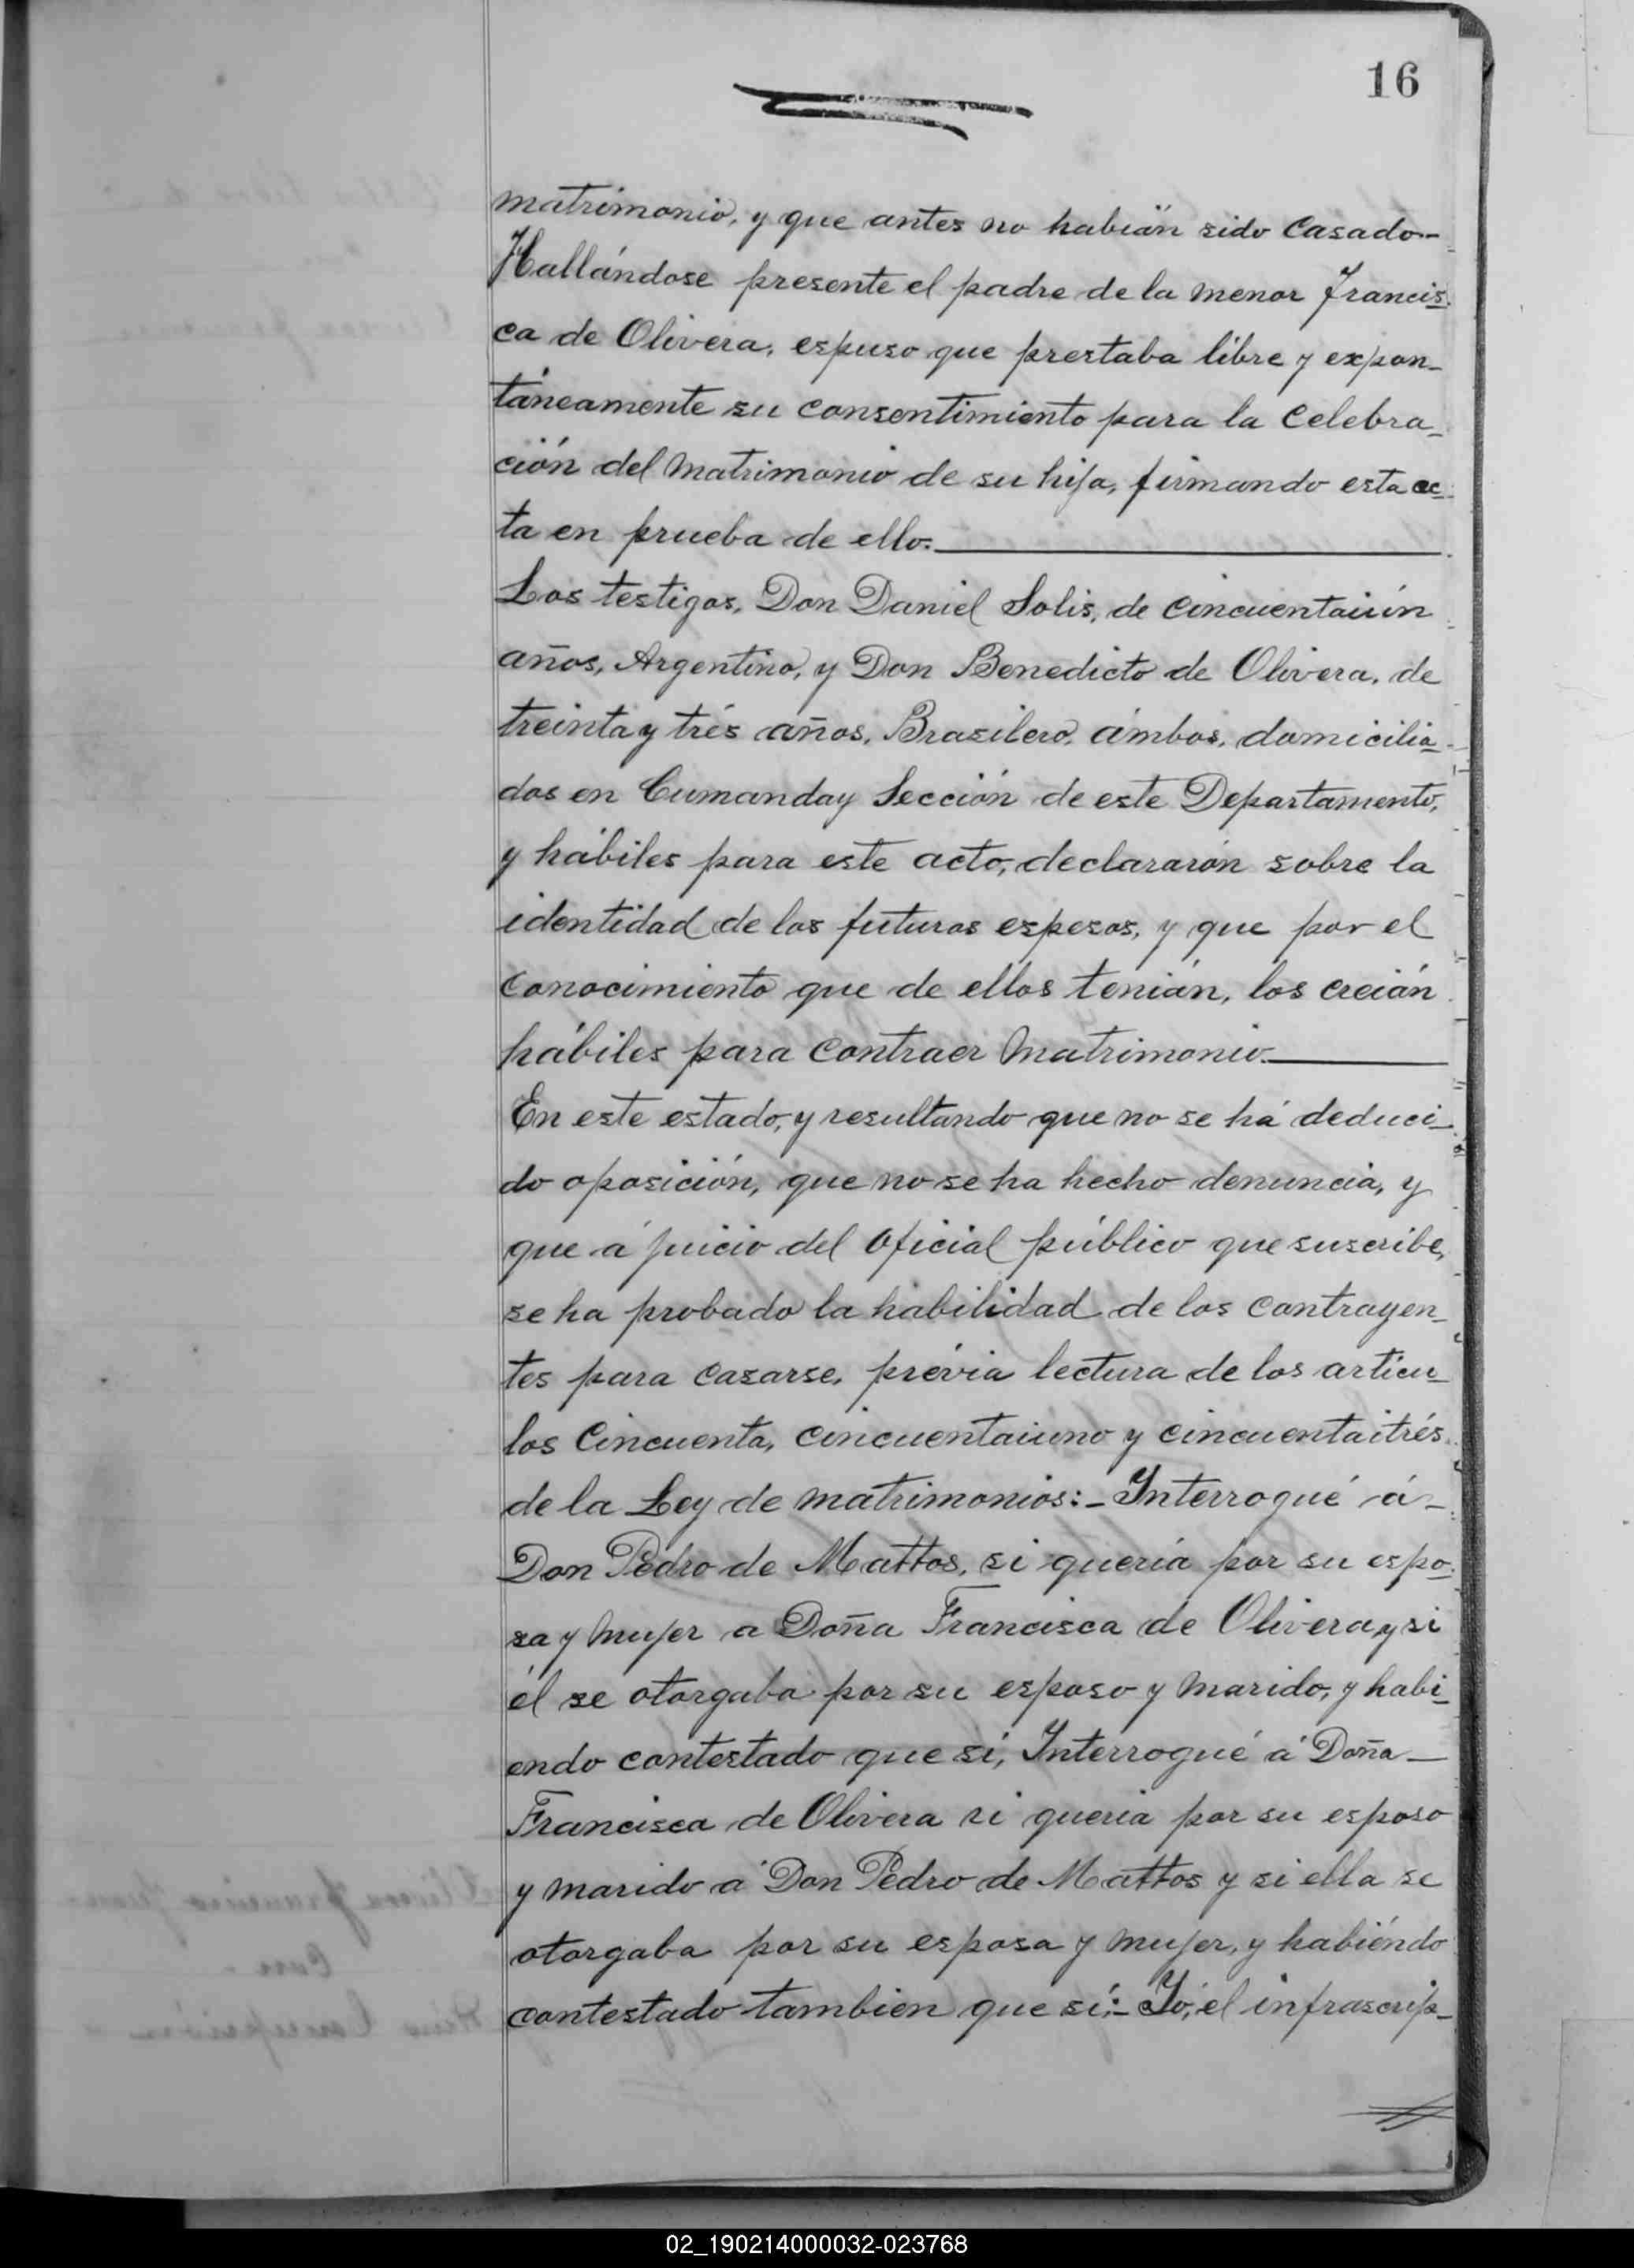 16
matrimonio, y que antes no habián sido casado-
Hallándose presente el padre de la menor Francis
ca de Olivera, espuso que prestaba libre y expon-
táneamente su consentimiento para la celebra-
ción del matrimonio de su hija, firmando esta ac-
ta en prueba de ello.
Los testigos, Don Daniel Solis, de cincuentaiún
años, Argentino, y Don Benedicto de Olivera, de
treinta y trés años, Brasilero, ámbos, domicilia-
dos en Cumanday Sección de este Departamento,
y hábiles para este acto, declararón sobre la
identidad de los futuros espesos, y que por el
conocimiento que de ellos tenián, los creián
hábiles para contraer matrimonio.
En este estado, y resultando que no se há deduci-
do oposición, que no se ha hecho denuncia, y
que á juicio del oficial público que suscribe,
se ha probado la habilidad de los contrayen-
tes para casarse, prévia lectura de los articu-
los cincuenta, cincuentaiuno y cincuentaitrés
de la Ley de matrimonios:- Interrogué á-
Don Pedro de Mattos, si queria por su espo-
sa y mujer a Doña Francisca de Olivera y si
él se otorgaba por su esposo y marido, y habi-
endo contestado que sí, Interrogué á Doña-
Francisca de Olivera si queria por su esposo
y marido á Don Pedro de Mattos y si ella se
otorgaba por su esposa y mujer, y habiéndo
contestado tambien que sí:- Yo, el infrascrip-
02_190214000032-023768